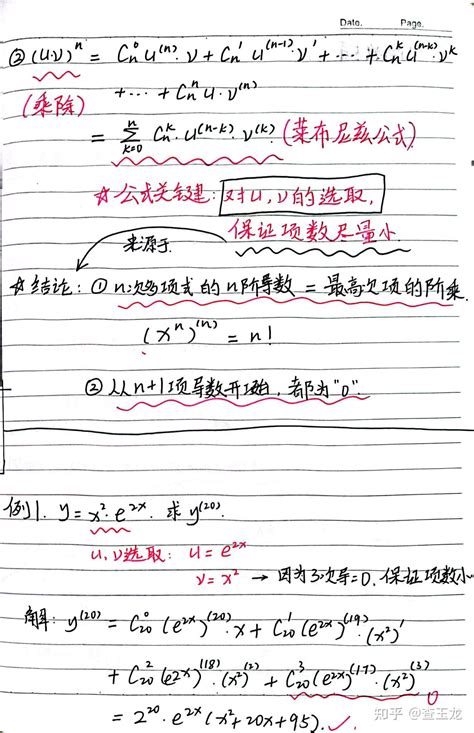 Date. Page.
② (u·v)ⁿ = Cₙ⁰ u⁽ⁿ⁾·v + Cₙ¹ u⁽ⁿ⁻¹⁾·v' + ··· + Cₙᵏ u⁽ⁿ⁻ᵏ⁾·vᵏ
(乘除) + ··· + Cₙⁿ u·v⁽ⁿ⁾
= Σₖ₌₀ⁿ Cₙᵏ·u⁽ⁿ⁻ᵏ⁾·v⁽ᵏ⁾ (莱布尼兹公式)
☆ 公式关键: 对u,v的选取,
保证项数尽量小.
来源于
☆ 结论: ① n次多项式的n阶导数 = 最高次项的阶乘.
(xⁿ)⁽ⁿ⁾ = n!
② 从n+1项导数开始, 都为"0".
例1. y = x²·e²ˣ. 求y⁽²⁰⁾.
u,v选取: u = e²ˣ
v = x² → 因为3次导=0. 保证项数小
解: y⁽²⁰⁾ = C₂₀⁰ (e²ˣ)⁽²⁰⁾·x + C₂₀¹ (e²ˣ)⁽¹⁹⁾·(x²)'
+ C₂₀² (e²ˣ)⁽¹⁸⁾·(x²)⁽²⁾ + C₂₀³ (e²ˣ)⁽¹⁷⁾·(x²)⁽³⁾ 0
= 2²⁰·e²ˣ (x²+20x+95). ✓
知乎 @查玉龙